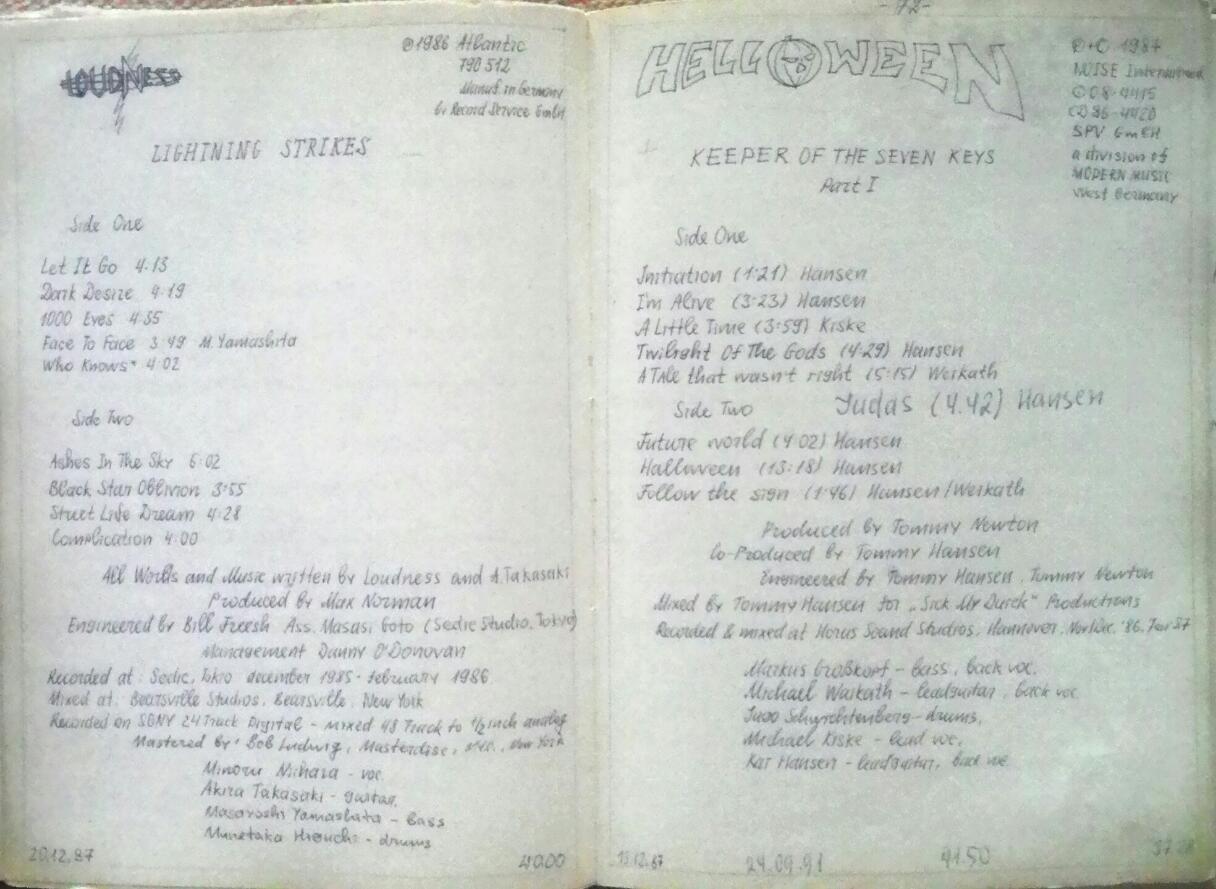 LOUDNESS
℗1986 Atlantic
790 512
Manuf. in Germany
by Record Service GmbH
LIGHTNING STRIKES
Side One
Let It Go 4:13
Dark Desire 4:19
1000 Eyes 4:35
Face To Face 3:49 M. Yamashita
Who Knows 4:02
Side Two
Ashes In The Sky 6:02
Black Star Oblivion 3:55
Street Life Dream 4:28
Complication 4:00
All Words and Music written by Loudness and A. Takasaki
Produced by Max Norman
Engineered by Bill Freesh Ass. Masasi Goto (Sedic Studio, Tokyo)
Management Danny O'Donovan
Recorded at: Sedic, Tokio december 1985 - february 1986
Mixed at: Bearsville Studios, Bearsville, New York
Recorded on SONY 24 Track Digital - mixed 48 Track to 1/2 inch analog
Mastered by: Bob Ludwig, Masterdisc, New York
Minoru Niihara - voc.
Akira Takasaki - guitar,
Masayoshi Yamashita - bass
Munetaka Higuchi - drums
20.12.87
40.00
-72-
HELLOWEEN
℗+© 1987
NOISE International
08-4415
CD 86-4420
SPV GmbH
a division of
MODERN MUSIC
West Germany
KEEPER OF THE SEVEN KEYS
Part I
Side One
Initiation (1:21) Hansen
I'm Alive (3:23) Hansen
A Little Time (3:59) Kiske
Twilight Of The Gods (4:29) Hansen
A TAle that wasn't right (5:15) Weikath
Side Two Judas (4.42) Hansen
Future world (4:02) Hansen
Halloween (13:18) Hansen
Follow the sign (1:46) Hansen/Weikath
Produced by Tommy Newton
Co-Produced by Tommy Hansen
Engineered by Tommy Hansen, Tommy Newton
Mixed by Tommy Hansen for „Sick My Duick" Productions
Recorded & mixed at Horus Sound Studios, Hannover, Nov/Dec. '86, Jan 87
Markus Großkopf - bass, back voc.
Michael Waikath - leadguitar, back voc
Ingo Schwichtenberg - drums,
Michael Kiske - lead voc.
Kai Hansen - leadguitar, back voc
13.12.87
24.09.91
41.50